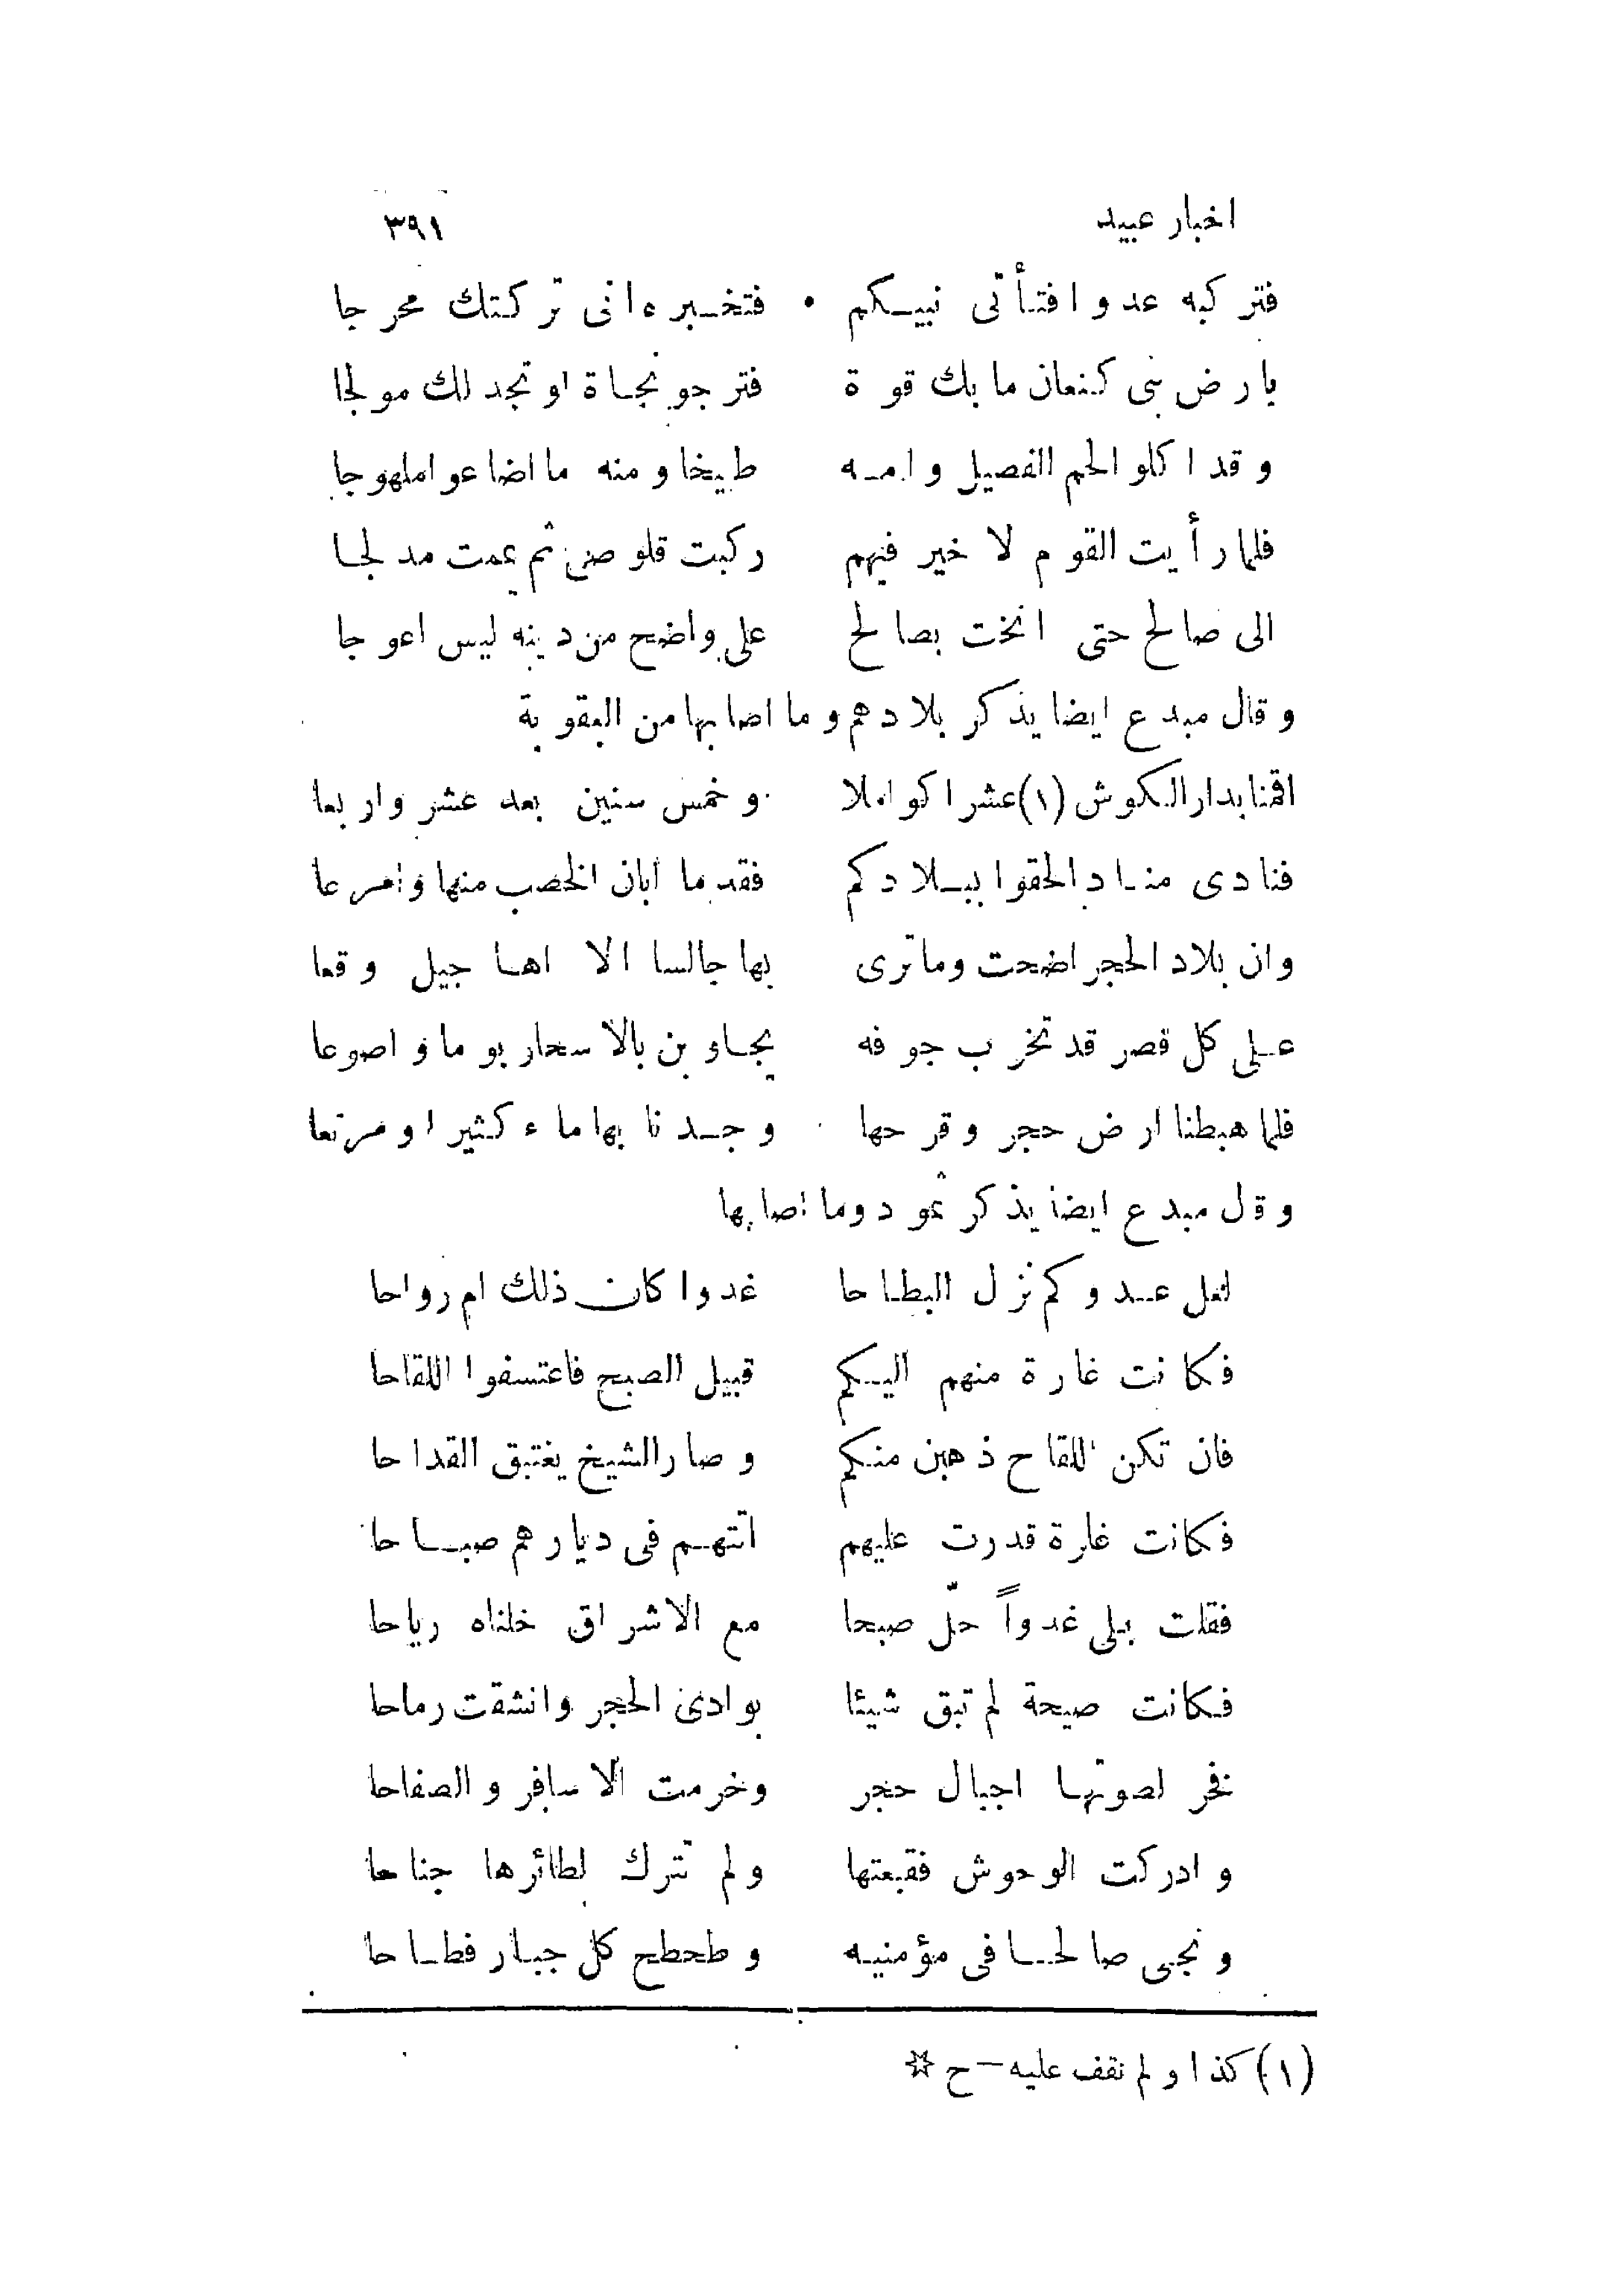 اخبار عبيد ٣٩١
فتركبه عدوا فتأتى نبيكم • فتخبره انى تركتك محرجا
بارض بنى كنعان مابك قوة فترجو نجاة او تجد لك مولجا
وقد اكلوا لحم الفصيل وامه طبيخا ومنه ما اضاعوا ملهوجا
فلما رأيت القوم لا خير فيهم ركبت قلوصى ثم يممت مدلجا
الى صالح حتى انخت بصالح على واضح من دينه ليس اعوجا
وقال مبدع ايضا يذكر بلادهم وما اصابها من العقوبة
اقمنا بدار الكوش (١) عشرا كواملا وخمس سنين بعد عشر واربعا
فنادى مناد الحقوا ببلادكم فقد ما ابان الخصب منها وامرعا
وان بلاد الحجر اضحت وماترى بها جالسا الا اها جيل وقعا
على كل قصر قد تخرب جوفه يجاوبن بالاسحار بوما واصوعا
فلما هبطنا ارض حجر وقرحها وجدنا بها ماء كثيرا ومرتعا
وقل مبدع ايضا يذكر ثمود وما اصابها
لعل عدوكم نزل البطاحا غدوا كان ذلك ام رواحا
فكانت غارة منهم اليكم قبيل الصبح فاعتسفوا اللقاحا
فان تكن اللقاح ذهبن منكم وصار الشيخ يغتبق القداحا
فكانت غارة قدرت عليهم اتتهم فى ديارهم صباحا
فقلت بلى غدواً حلّ صبحا مع الاشراق خلناه رياحا
فكانت صيحة لم تبق شيئا بوادى الحجر وانشقت رماحا
فخر لصوتها اجبال حجر وخرمت الاسافر والصفاحا
وادركت الوحوش فقبعتها ولم تترك لطائرها جناحا
ونجى صالحا فى مؤمنيه وطحطح كل جبار فطاحا
(١) كذا ولم نقف عليه — ح ☆